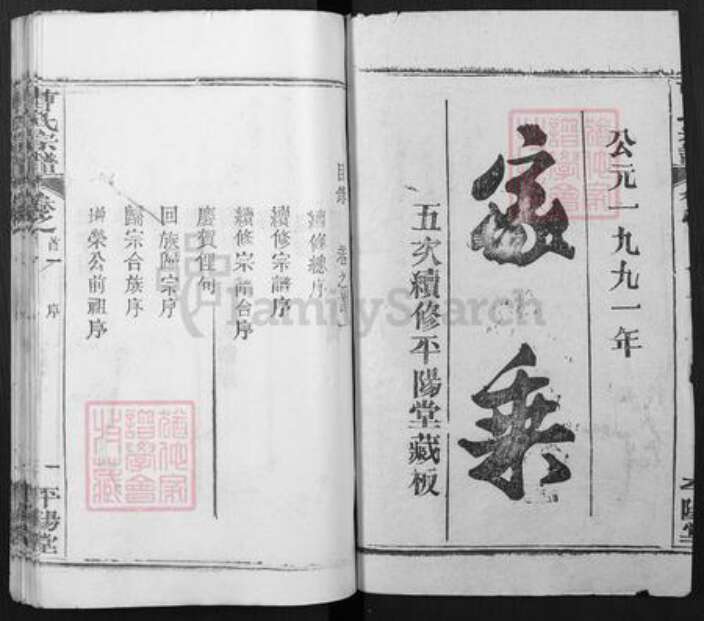 公元一九九一年
家乘
五次續修平陽堂藏板
目錄
續修總序
續修宗譜序
續修宗譜合序
慶賀俚句
回族歸宗序
歸宗合族序
榮公前祖序
氏宗譜
卷之首
序
一
平陽堂
FamilySearch